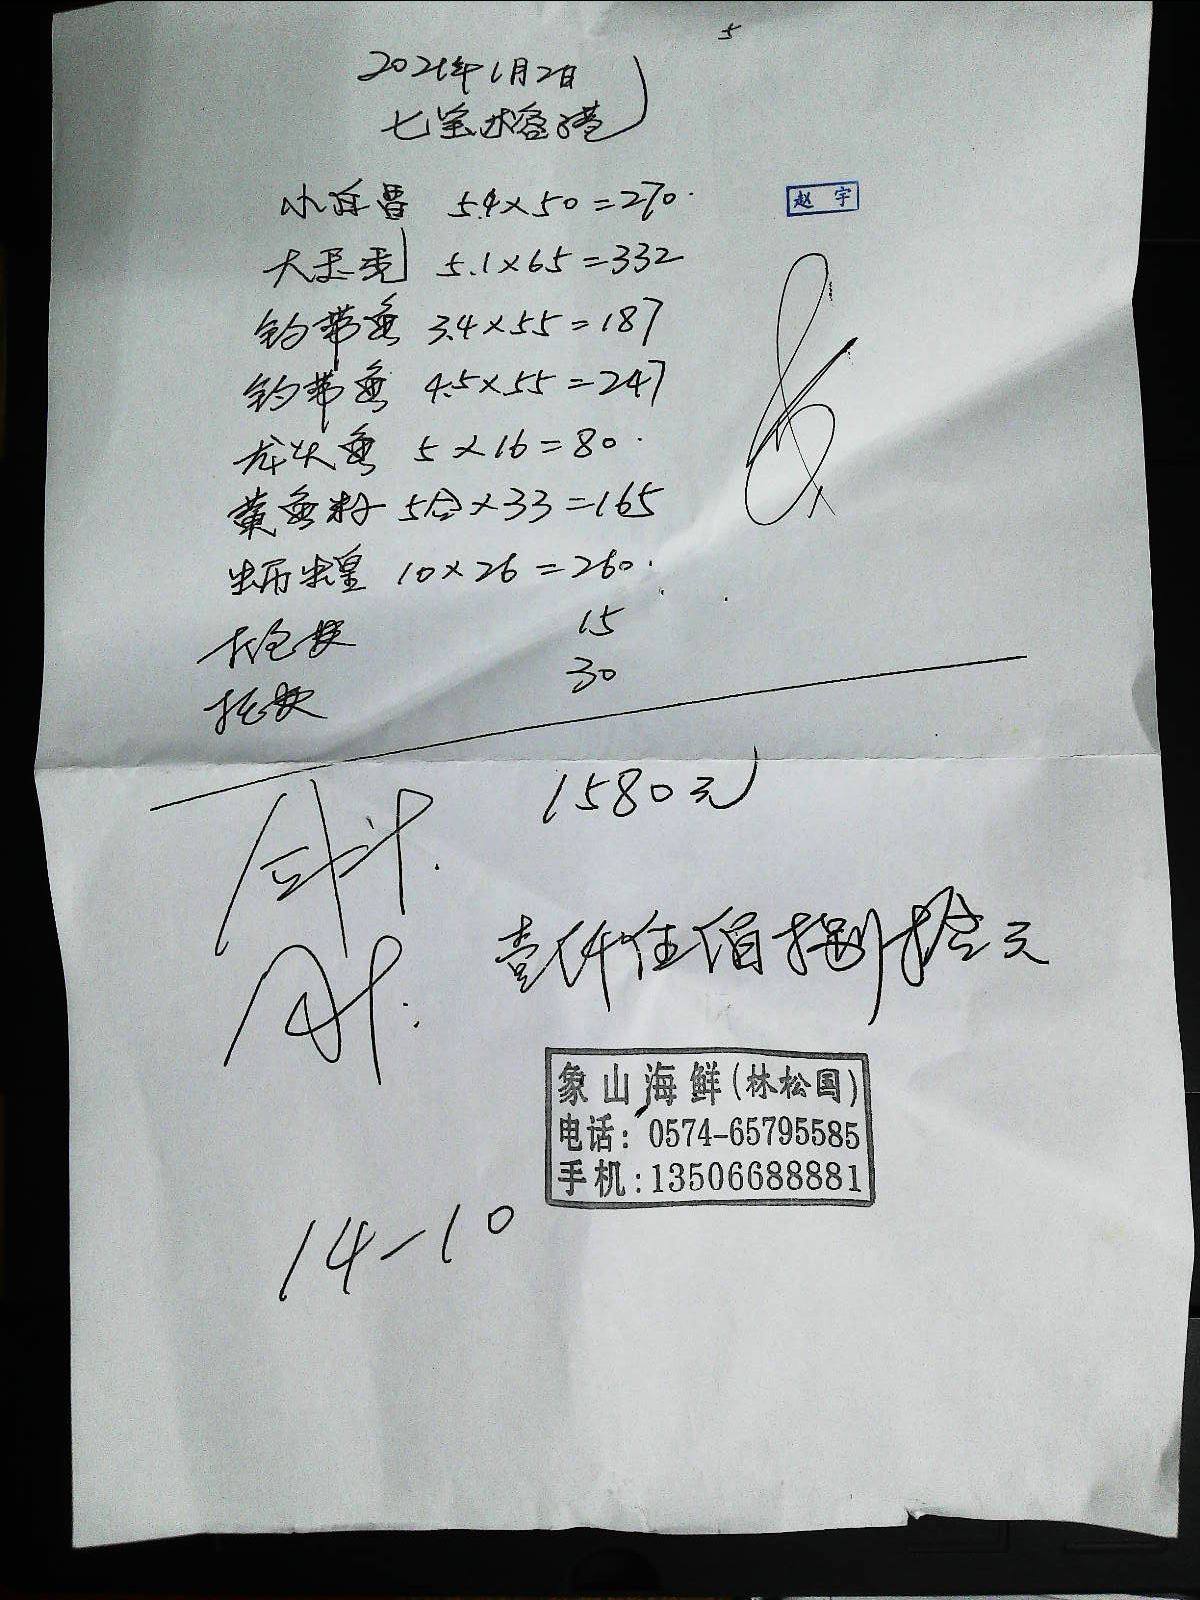 5
2021年1月2日
七宝
小 5.4×50=270
大 5.1×65=332
钓带鱼 3.4×55=187
钓带鱼 4.5×55=247
龙头鱼 5×16=80
黄鱼籽 5合×33=165
10×26=260
15
30
合计 1580元
壹仟伍佰捌拾元
赵宇
象山海鲜(林松国)
电话:0574-65795585
手机:13506688881
14-10